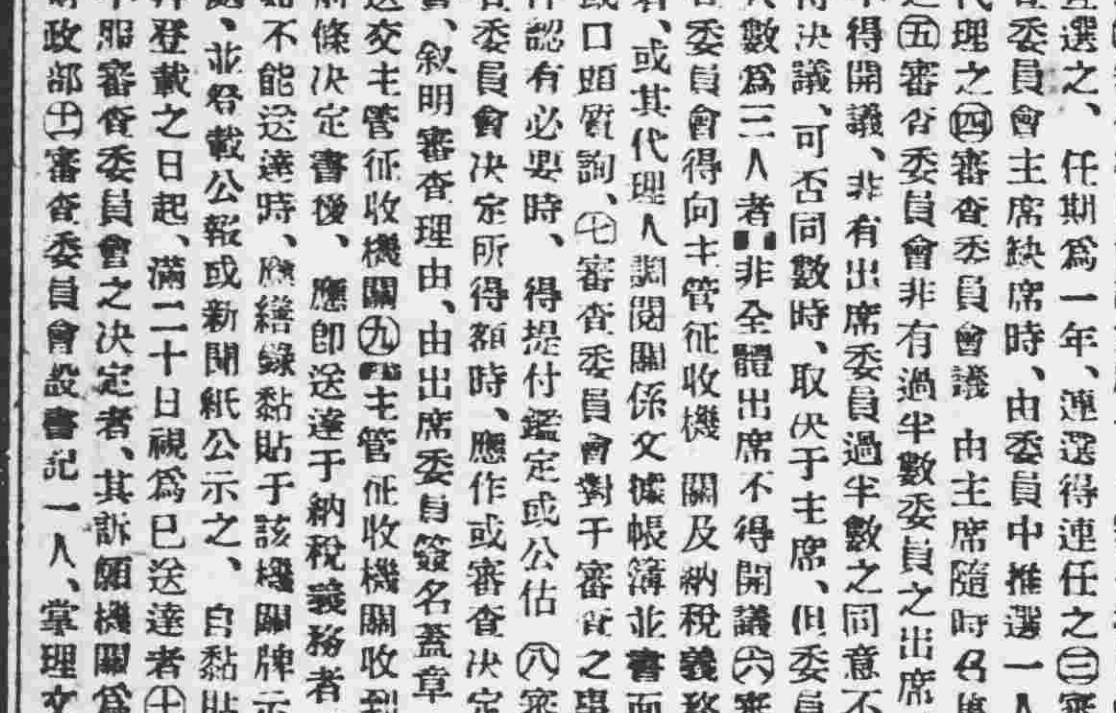 選之、任期爲一年、連選得連任之㊂審
委員會主席缺席時、由委員中推選一人
代理之㊃審查委員會議 由主席隨時召集
㊄審查委員會非有過半數委員之出席
不得開議、非有出席委員過半數之同意不
得決議、可否同數時、取決于主席、但委員
人數爲三人者 非全體出席不得開議㊅審
委員會得向主管征收機 關及納稅義務
、或其代理人調閱關係文據帳簿並書面
或口頭質詢、㊆審查委員會對于審查之事
件認有必要時、得提付鑑定或公估 ㊇審
委員會決定所得額時、應作成審查決定
書、叙明審查理由、由出席委員簽名蓋章
送交主管征收機關㊈ 主管征收機關收到
前條決定書後、應卽送達于納稅義務者
如不能送達時、應繕錄黏貼于該機關牌示
、並登載公報或新聞紙公示之、 自黏貼
登載之日起、滿二十日視爲已送達者㊉
不服審查委員會之決定者、其訴願機關爲
財政部㊉一審查委員會設書記一人、掌理文